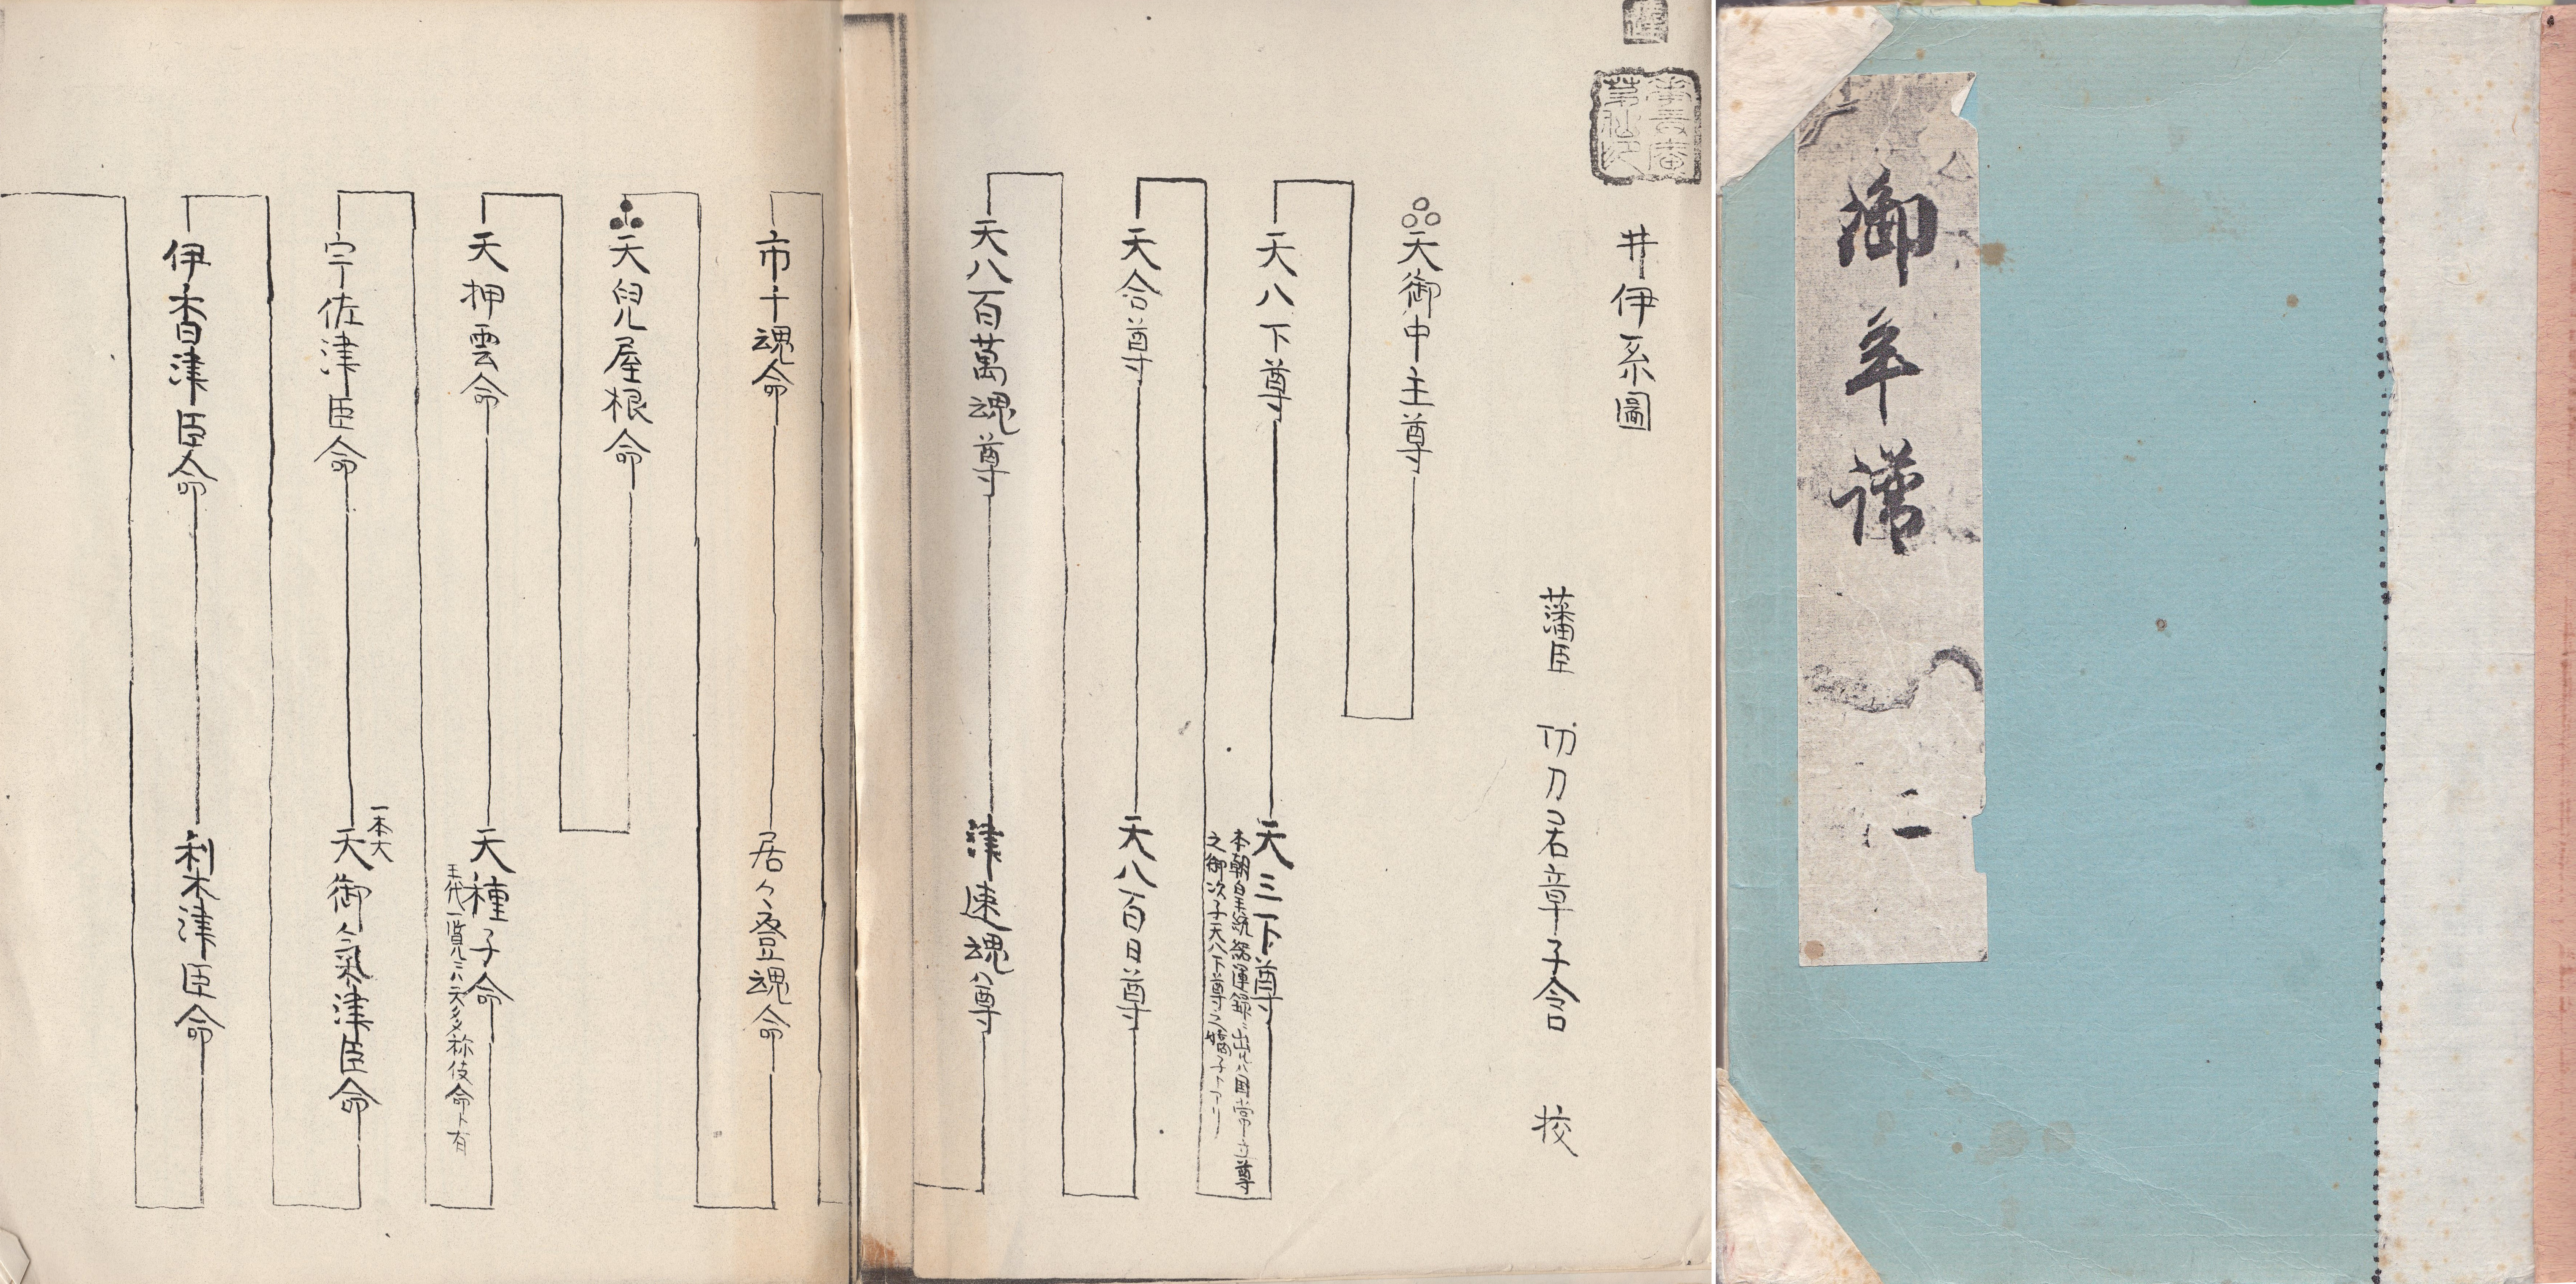 御年譜 二
井伊系圖
藩臣 功刀君章子含 挍
天御中主尊
天八下尊
天三下尊
本朝皇統紹運録ニ出ル国常立尊
之御次子天八下尊之嫡子トアリ
天合尊
天八百日尊
天八百萬魂尊
津速魂尊
市千魂命
居々登魂命
天兒屋根命
天押雲命
天種子命
王代一覧ニハ天多祢伎命ト有
宇佐津臣命
一本大
天御氣津臣命
伊香津臣命
利木津臣命